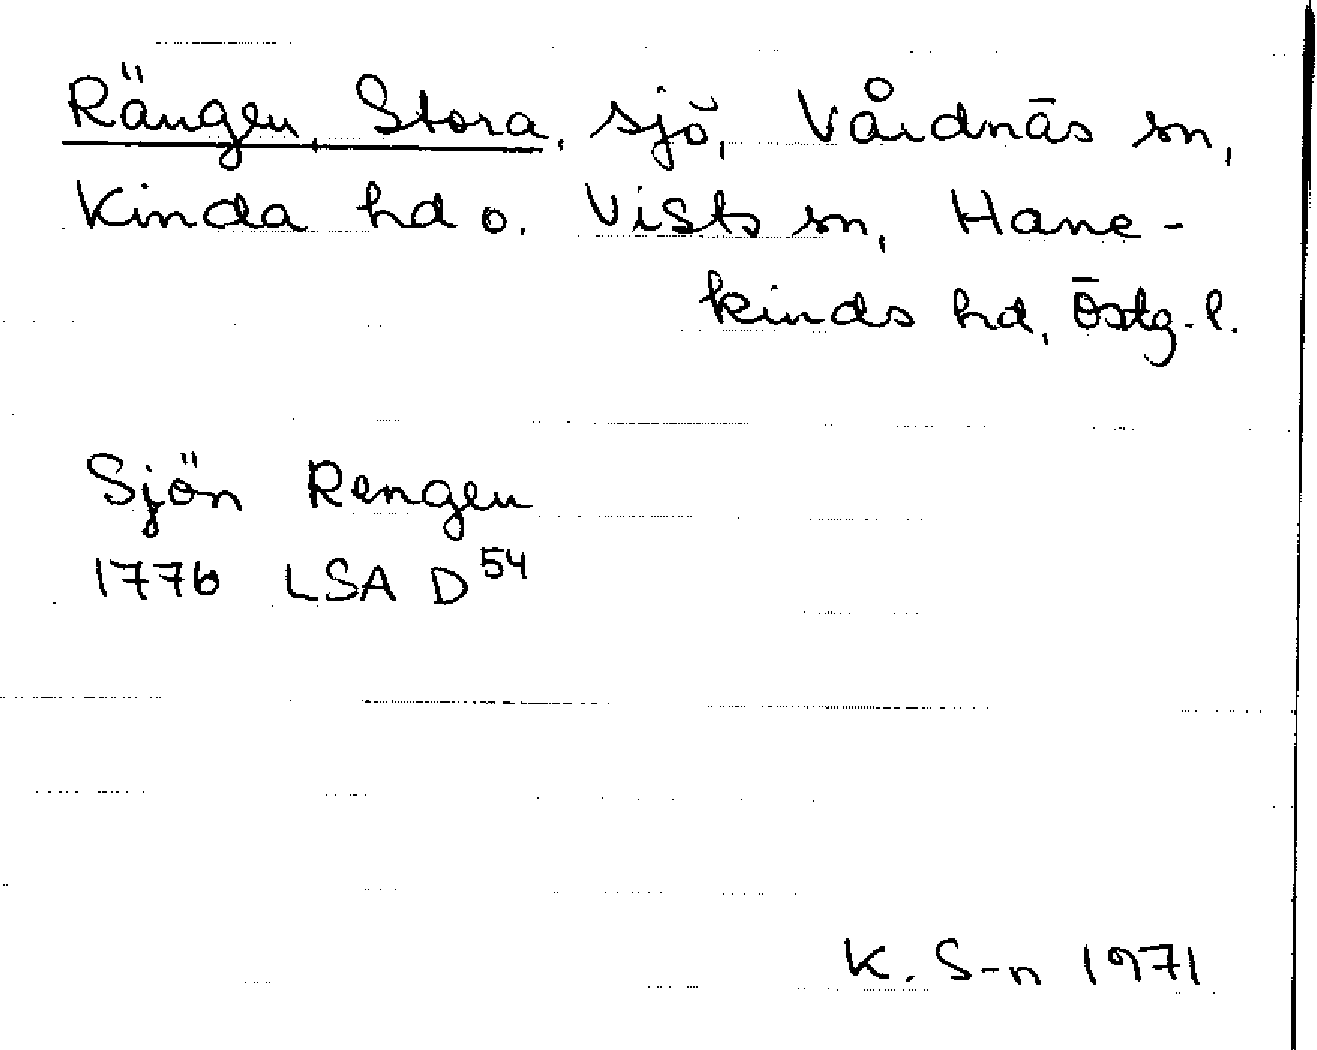 Rängen, Stora, sjö, Vårdnäs sn,
Kinda hd o. Vists sn, Hane-
kinds hd, Östg. l.
Sjön Rengen
1776 LSA D54
K. S-n 1971